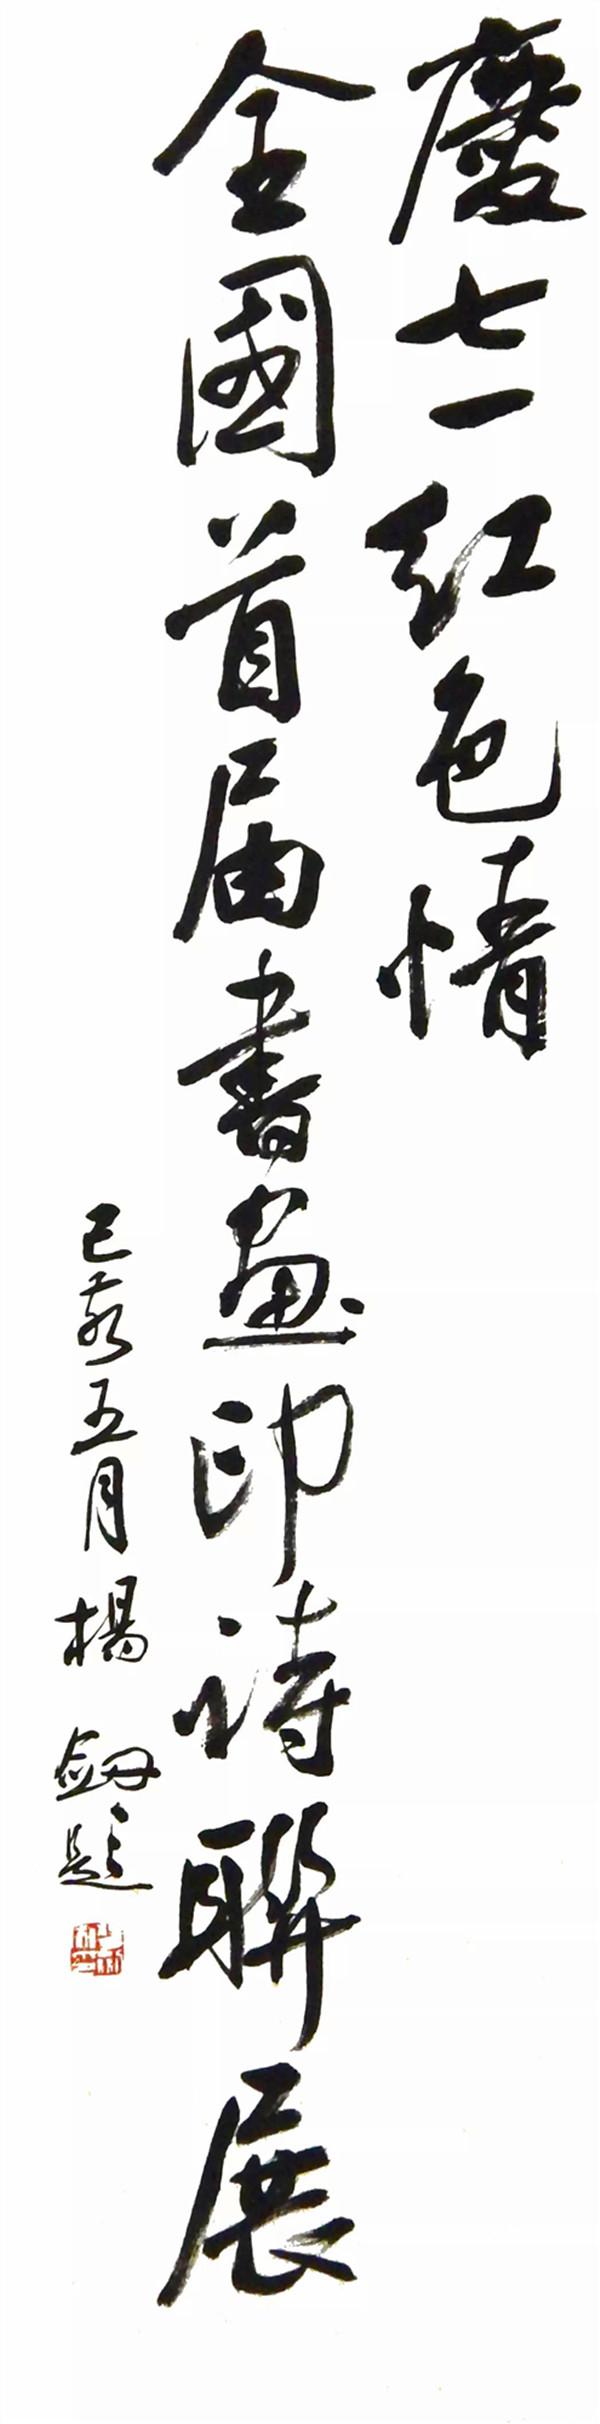 慶七一紅色情
全國首届書畫印詩聯展
己亥五月楊劍題